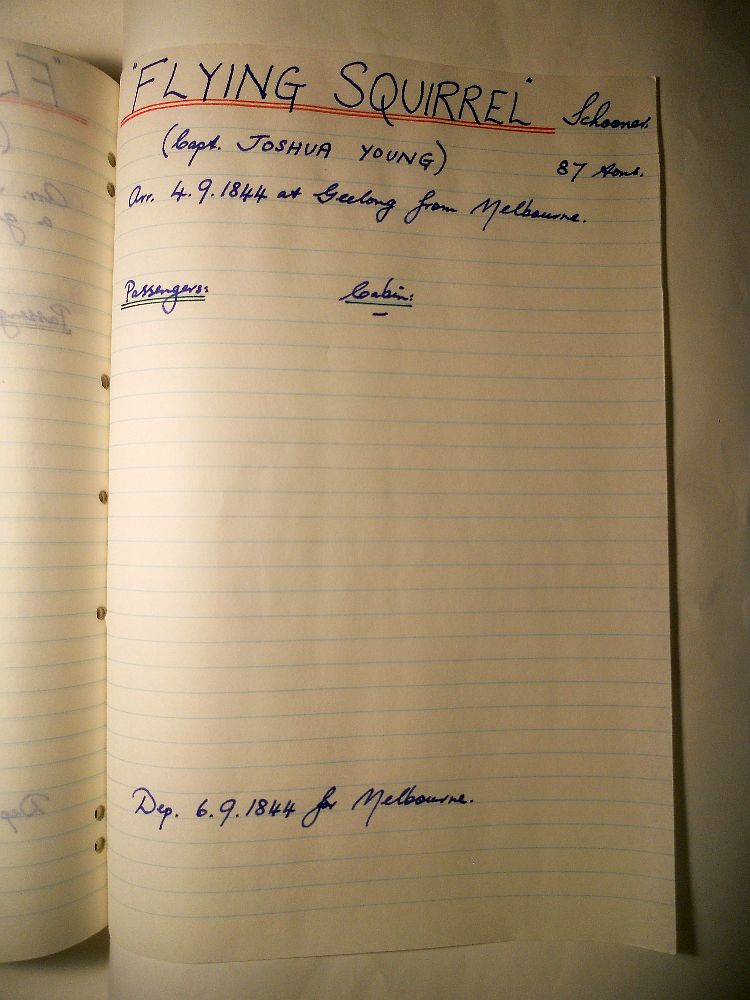 "FLYING SQUIRREL" Schooner.
(Capt. JOSHUA YOUNG) 87 tons.
Arr. 4.9.1844 at Geelong from Melbourne.
Passengers: Cabin:
–
Dep. 6.9.1844 for Melbourne.